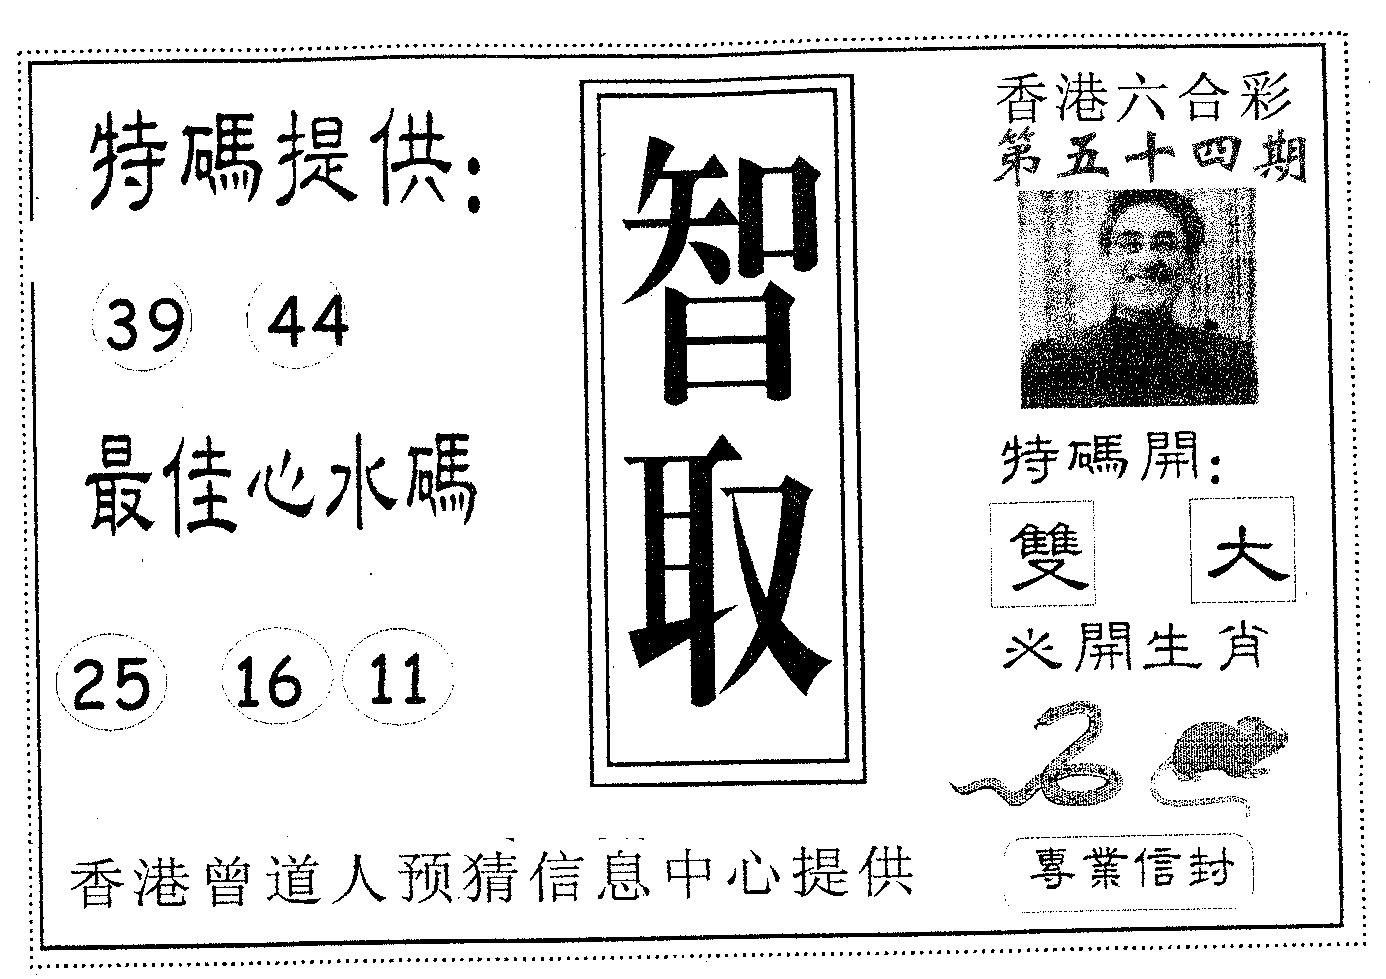 特碼提供：
39 44
最佳心水碼
25 16 11
智取
香港六合彩
第五十四期
特碼開：
雙 大
必開生肖
香港曾道人预猜信息中心提供
專業信封